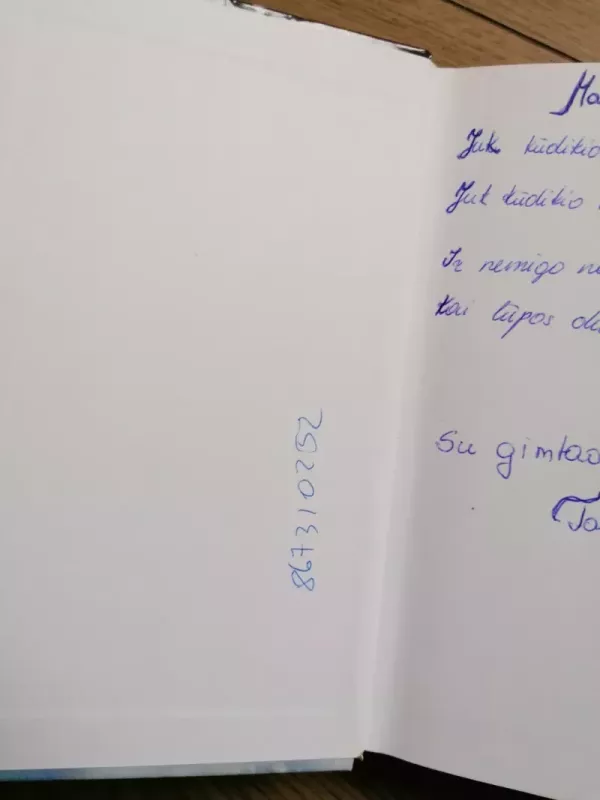 867310252
Ma
Juk kūdikio
Juk kūdikio
Ir nemigo
Kai lūpos
Su gimtad